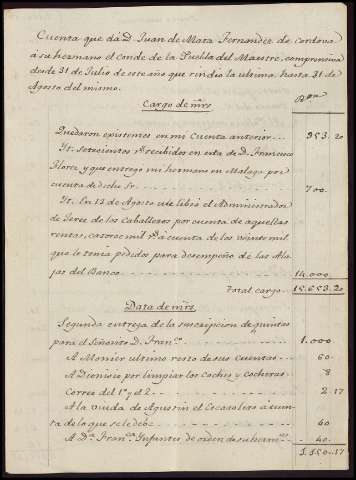 Cuenta que da D. Juan de Mata Fernandez de Cordova
á su hermano el Conde de la Puebla del Maestre, comprensiva
desde 31 de Julio de este año que rindio la ultima, hasta 31 de
Agosto del mismo.
Cargo de mrs.
Quedaron existentes en mi Cuenta anterior 953.20
Yt. Setecientos rs. recibidos en esta de D. Francisco
Florez y que entregó mi hermano en Malaga por
cuenta de dicho Sr. 700.
Yt. En 15 de Agosto me libró el Administrador
de Xerez de los Caballeros por cuenta de aquellas
rentas, catorce mil rs. á cuenta de los veinte mil
que le tenia pedidos para desempeño de las Ala-
jas del Banco 14.000.
Total cargo 15.653.20
Data de mrs.
Segunda entrega de la suscripcion de quintos
para el Señorito D. Franco. 1.000
A Monier ultimo resto de sus cuentas 60.
A Dionisio por limpiar los coches y cocheras 8
Correo del 1º y el 2 2.17
A la viuda de Agustin el Escarolero á cuen-
ta de lo que se le debe 40
A Da. Franca. Infantes de orden de su herm. 40.
1.150.17